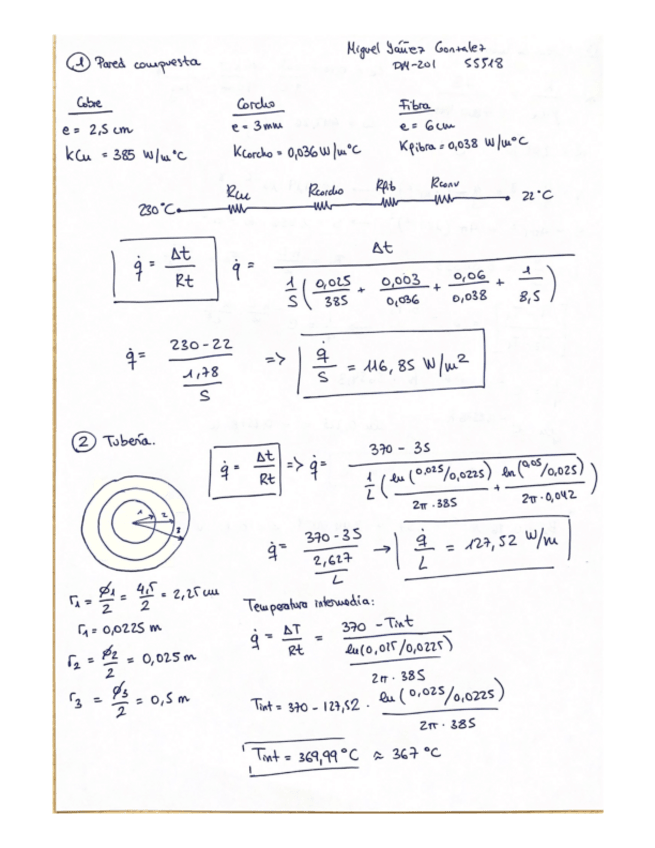 Miguel Yáñez Gonzalez
① Pared compuesta
DM-201 55518
Cobre
e = 2,5 cm
kCu = 385 W/m°C
Corcho
e = 3 mm
Kcorcho = 0,036 W/m°C
Fibra
e = 6 cm
Kfibra = 0,038 W/m°C
230°C Rcu Rcorcho Rfib Rconv 22°C
q̇ = Δt / Rt
q̇ = Δt / (1/S (0,025/385 + 0,003/0,036 + 0,06/0,038 + 1/8,5))
q̇ = (230-22) / (1,78/S) => q̇/S = 116,85 W/m²
② Tubería.
q̇ = Δt/Rt => q̇ = (370 - 35) / (1/L (ln(0,025/0,0225)/2π·385 + ln(0,05/0,025)/2π·0,042))
1 2 3
q̇ = (370-35) / (2,627/L) → q̇/L = 127,52 W/m
r1 = ϕ1/2 = 4,5/2 = 2,25 cm
r1 = 0,0225 m
r2 = ϕ2/2 = 0,025 m
r3 = ϕ3/2 = 0,5 m
Temperatura intermedia:
q̇ = ΔT/Rt = (370 - Tint) / (ln(0,025/0,0225) / 2π·385)
Tint = 370 - 127,52 · ln(0,025/0,0225) / 2π·385
Tint = 369,99°C ≈ 367°C